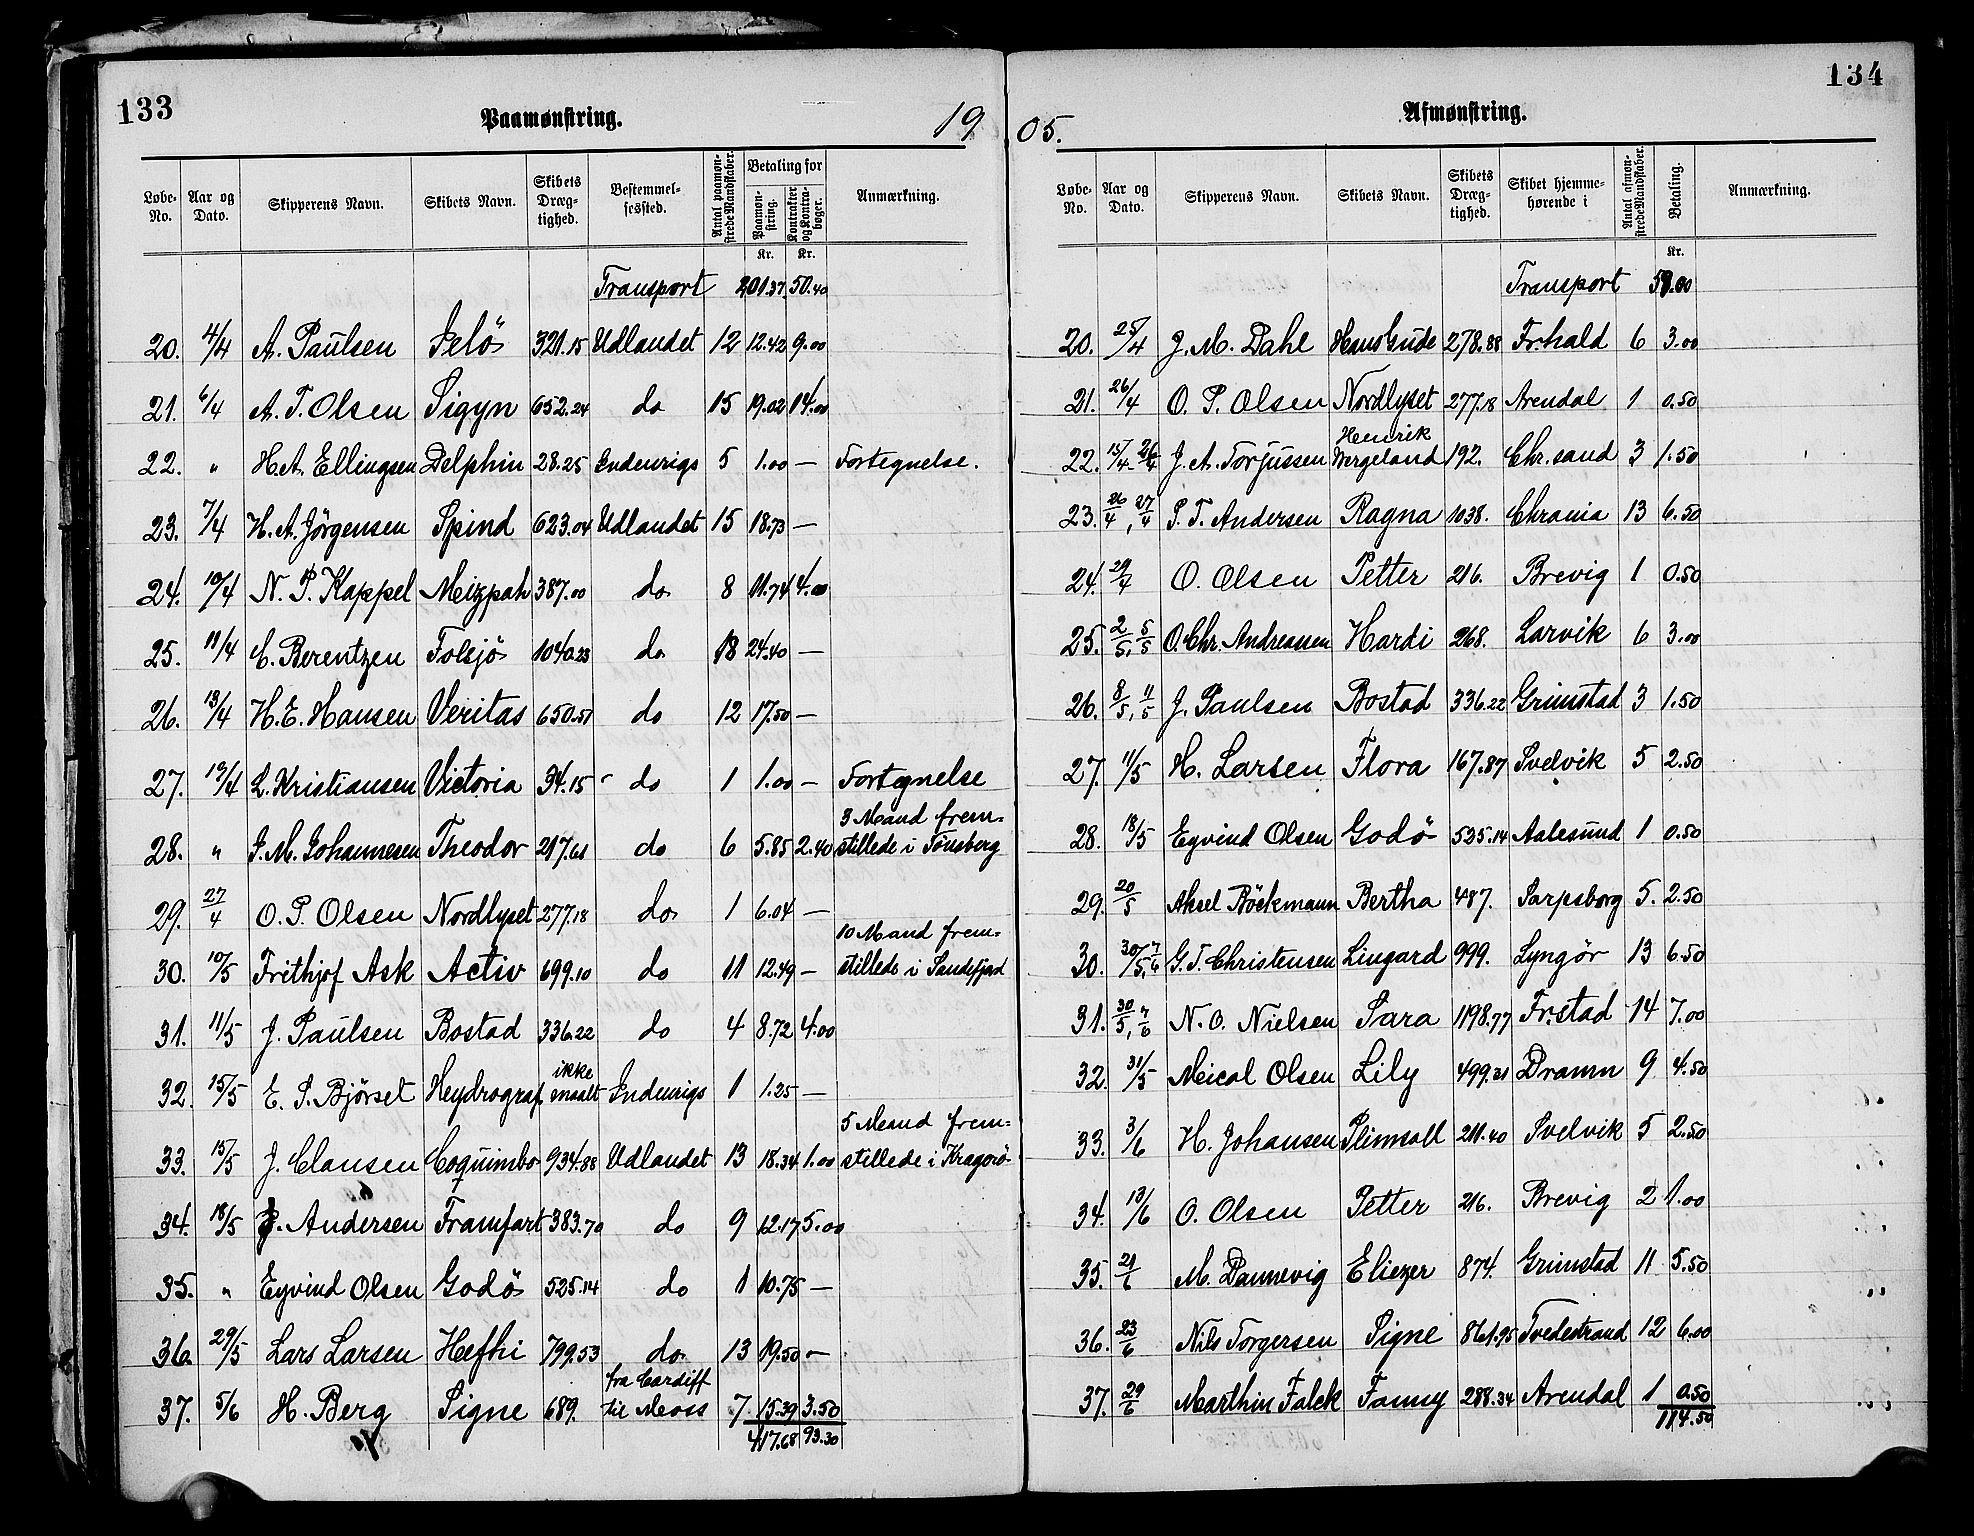 133
Paamønstring.
19
Løbe-No. Aar og Dato. Skipperens Navn. Skibets Navn. Skibets Dræg-tighed. Bestemmel-sessted. Antal paamøn-strede Mandskaber. Betaling for Paamøn-string. Kontrakter og Kontra-bøger. Anmærkning.
Kr. Kr.
Transport 201.37 50.40
20. 4/4 A. Paulsen Jelö 321.15 Udlandet 12 12.42 9.00
21. 6/4 A. T. Olsen Sigyn 652.24 do 15 19.02 14.00
22. " H.A. Ellingsen Delphin 28.25 Indenrigs 5 1.00 — Fortegnelse.
23. 7/4 H. A. Jörgensen Spind 623.04 Udlandet 15 18.73 —
24. 10/4 N. P. Kappel Meizpah 387.00 do 8 11.74 4.00
25. 11/4 C. Berentzen Folsjö 1040.23 do 18 24.40 —
26. 13/4 H. E. Hansen Veritas 650.57 do 12 17.50 —
27. 19/4 L. Kristiansen Victoria 34.15 do 1 1.00 — Fortegnelse
3 Mand frem-
28. " J. M. Johannesen Theodor 217.61 do 6 5.85 2.40 stillede i Tønsberg
29. 27/4 O. P. Olsen Nordlyset 277.18 do 1 6.04 —
10 Mand frem-
30. 10/5 Frithjof Ask Activ 699.10 do 11 12.49 — stillede i Sandefjord
31. 11/5 J. Paulsen Bostad 336.22 do 4 8.72 4.00
ikke
32. 15/5 E. S. Bjørset Heydrograf maalt Indenrigs 1 1.25 —
5 Mand frem-
33. 15/5 J. Clausen Coquimbo 934.88 Udlandet 13 18.34 1.00 stillede i Kragerö
34. 18/5 Andersen Framfart 383.70 do 9 12.17 5.00
35. " Eyvind Olsen Godö 525.14 do 1 10.75 —
36. 29/5 Lars Larsen Hefhi 799.53 do 13 19.50 —
fra Cardiff
37. 5/6 H. Berg Signe 689. til Moss 7 15.39 3.50
417.68 93.30
134
Afmønstring.
05.
Løbe-No. Aar og Dato. Skipperens Navn. Skibets Navn. Skibets Dræg-tighed. Skibet hjemme-hørende i Antal afmøn-strede Mandskaber. Betaling. Anmærkning.
Kr.
Transport
20. 25/4 J. M. Dahl Hans Gude 278.88 Fr.hald 6 3.00
21. 26/4 O. P. Olsen Nordlyset 277.18 Arendal 1 0.50
Henrik
22. 15/4 26/4 J. A. Torjussen Wergeland 192. Chr.sand 3 1.50
23. 26/4, 27/4 P. T. Andersen Ragna 1038. Chrania 13 6.50
24. 29/4 O. Olsen Petter 216. Brevig 1 0.50
25. 2/5, 5/5 O. Chr. Andreassen Hardi 268. Larvik 6 3.00
26. 8/5, 11/5 J. Paulsen Bostad 336.22 Grimstad 3 1.50
27. 11/5 H. Larsen Flora 167.87 Svelvik 5 2.50
28. 18/5 Eyvind Olsen Godö 525.14 Aalesund 1 0.50
29. 20/5 Aksel Böckmann Bertha 487. Sarpsborg 5. 2.50
30. 30/5, 7/6 G. T. Christensen Lingard 999. Lyngör 13 6.50
31. 30/5, 7/6 N. O. Nielsen Sara 1198.77 Fr.stad 14 7.00
32. 31/5 Meical Olsen Lily 499.21 Dramn 9 4.50
33. 3/6 H. Johansen Plimsoll 211.40 Svelvik 5 2.50
34. 13/6 O. Olsen Petter 216. Brevig 2 1.00
35. 21/6 M. Dannevig Eliezer 874. Grimstad 11 5.50
36. 23/6 Nils Torgersen Signe 861.95 Tvedestrand 12 6.00
37. 29/6 Marthin Falck Fanny 288.34 Arendal 1 0.50
114.50